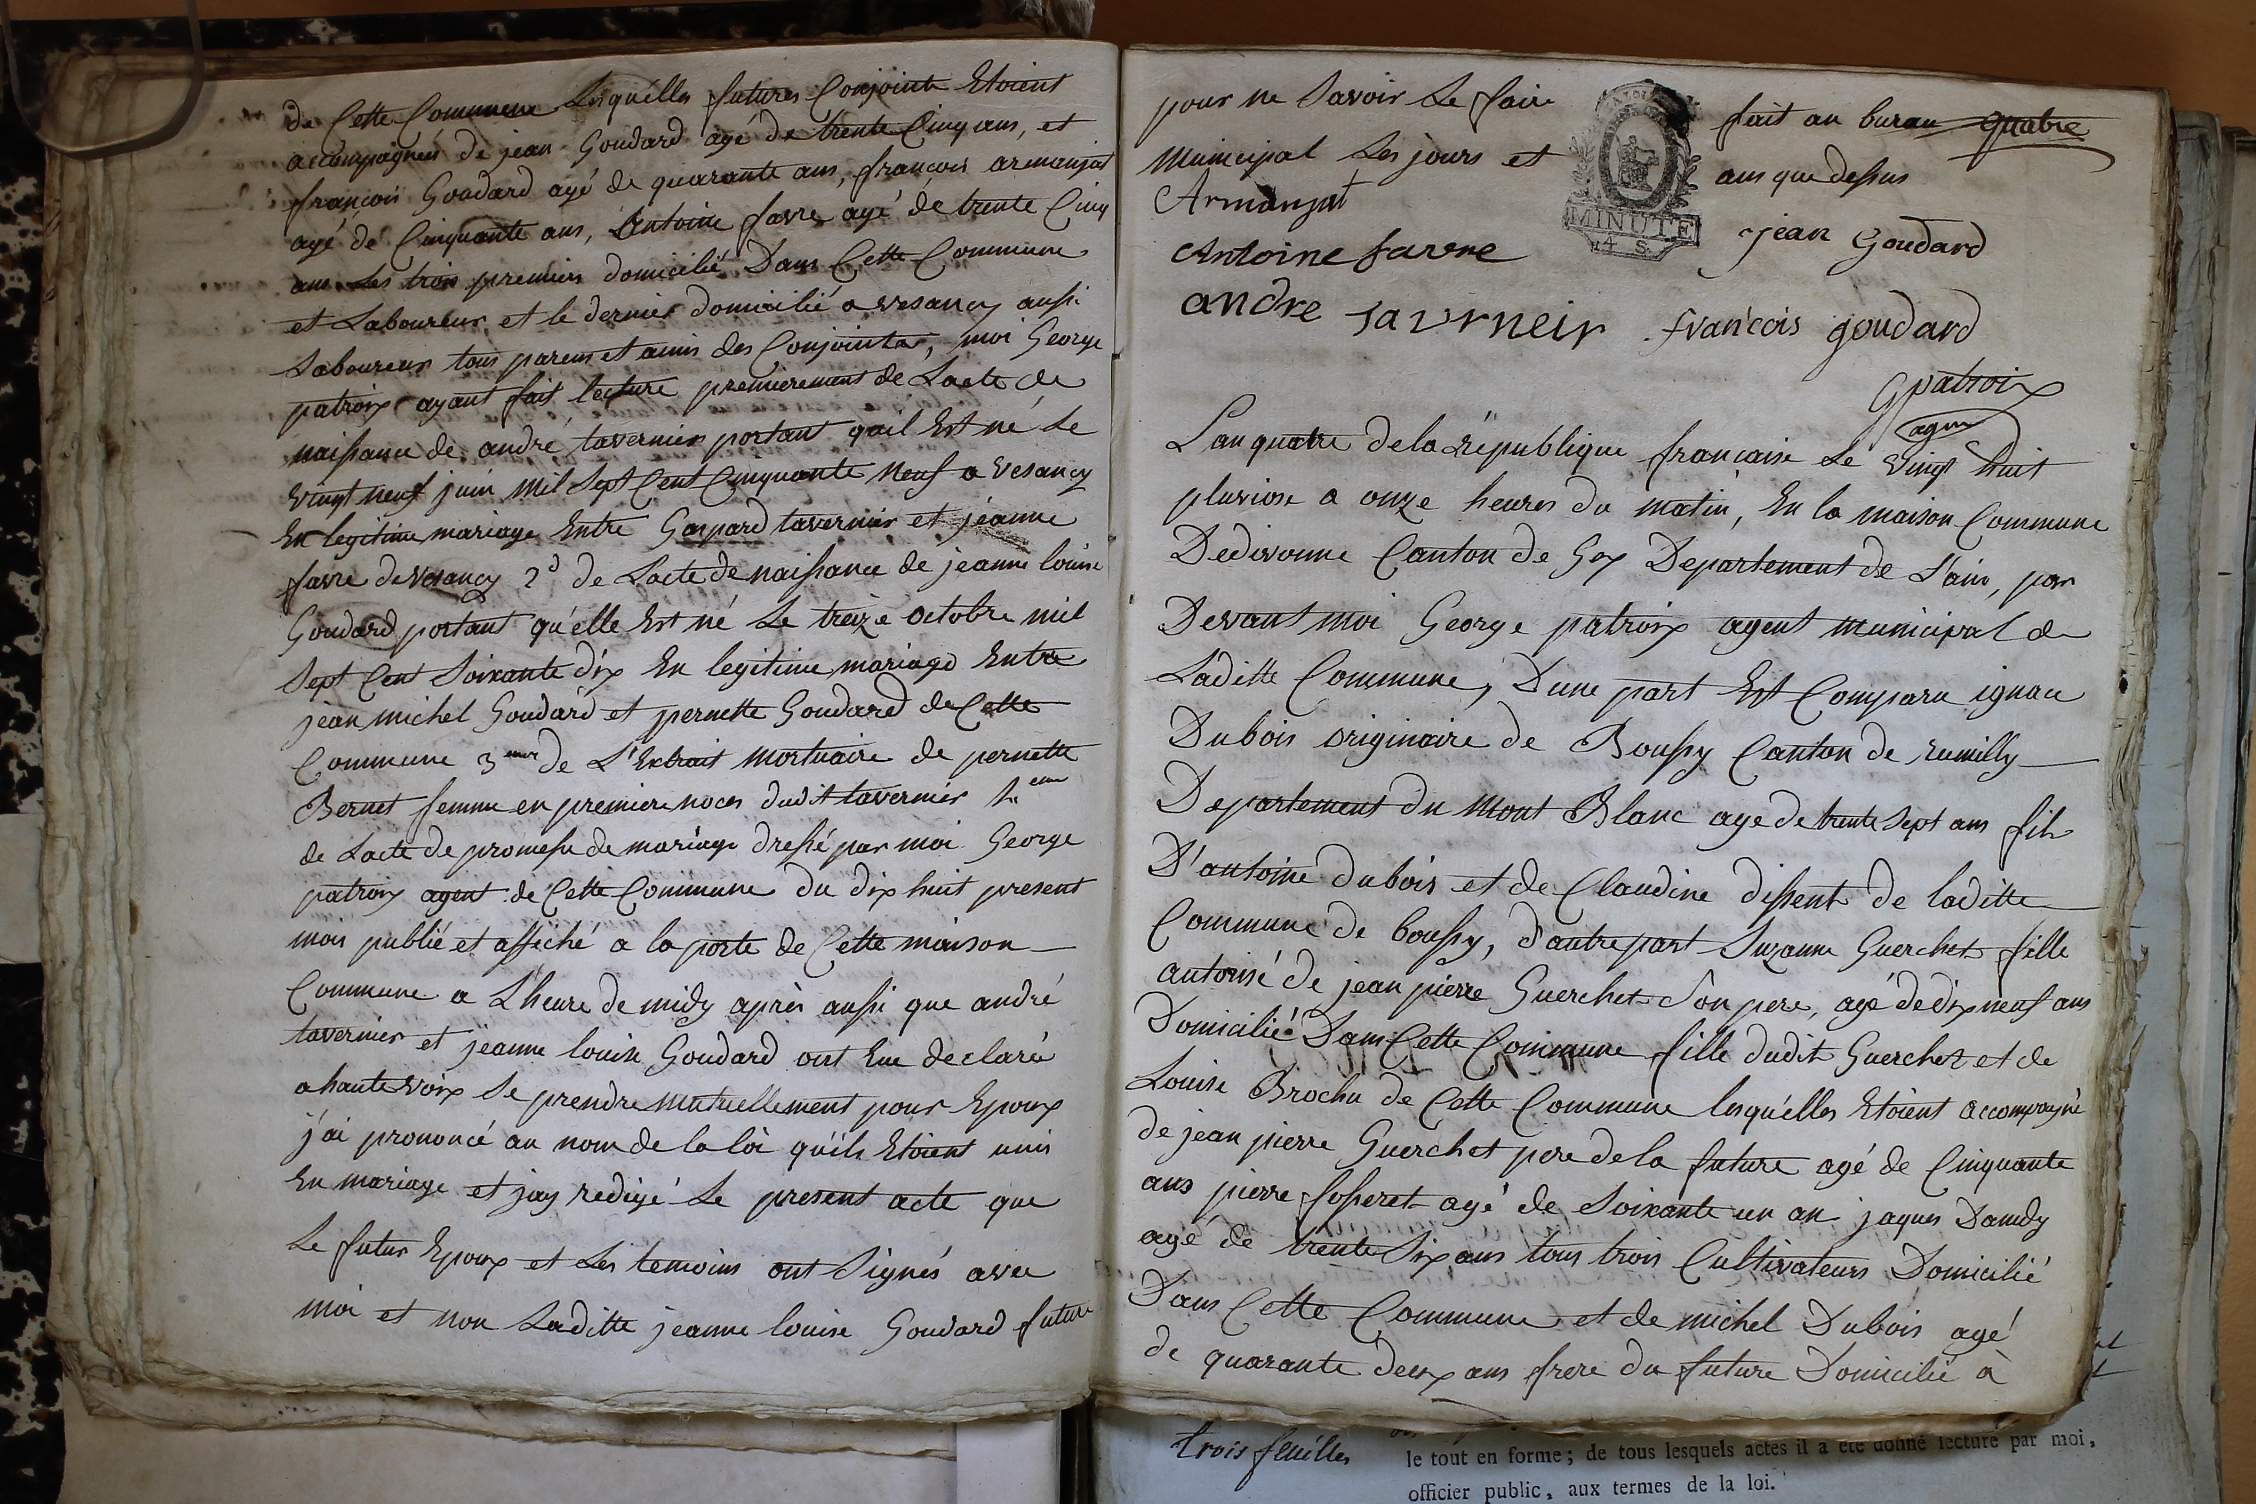 de Cette Commune Lesquélles futures Conjoints Etoient
accompagnées de jean Goudard agé de trente Cinq ans, et
françois Goudard agé de quarante ans, françois armanjat
agé dé Cinquante ans, Antoine favre agé dé trente Cinq
ans Les trois premiers domicilié Dans Cette Commune
et Laboureur et le dernier domicilié a vesancy aussi
Laboureur tous parens et amis des Conjointes, moi George
patroix ayant fait lecture premierement de Lacte de
naissance de andré tavernier portant quil Est né Le
vingt neuf juin mil Sept Cent Cinquante Neuf a Vesancy
En legitime mariage Entre Gaspard tavernier et jéanne
favre de vesancy 2° de Lacte de naissance de jéanne louise
Goudard portant qu'elle Est né Le treize octobre mil
Sept Cent Soixante dix En legitime mariage Entre
jean michel Goudard et pernette Goudard de Cette
Commune 3eme de L'Extrait mortuaire de pernette
Bernet femme en premiere noces dudit tavernier 4eme
de Lacte de promesse de mariage dressé par moi George
patroix agent de Cette Commune du dix huit present
mois publié et affiché a la porte de Cette maison
Commune a L'heure de midy après aussi que andré
tavernier et jéanne louise Goudard ont Eue declaré
a haute voix Se prendre mutuellement pour Epoux
j'ai prononcé au nom de la loi qu'ils Etoient unis
En mariage et jay redigé Le present acte que
Le futur Epoux et Les temoins ont Signés avec
moi et non Laditte jeanne louise Goudard future
pour ne Savoir Le faire fait au bureau quatre
Municipal Les jours et ans que dessus
MINUTE
4 S.
Armanjat
jean Goudard
Antoine favre
andre taverneir françois goudard
Gpatroix
agent
L'an quatre de la République francaise Le vingt huit
pluviose a onze heures du matin, En la maison Commune
Dedivonne Canton de Gex Departement de L'ain, par
Devant moi George patroix agent municipal de
Laditte Commune, D'une part Est Comparu ignace
Dubois originaire de Boussy Canton de rumilly
Departement du Mont Blanc age de trente Sept ans fils
D'antoine dubois et de Claudine dissent de laditte
Commune de boussy, d'autre part Suzanne Guerchet fille
autorisé de jean pierre Guerchet Son pere, agé de dix neuf ans
Domicilié Dans Cette Commune fille dudit Guerchet et de
Louise Brochu de Cette Commune lesquélles Etoient accompagné
de jean pierre Guerchet pere de la future agé de Cinquante
ans pierre fosseret agé de Soixante un an jaques Damdy
agé de trente Six ans tous trois Cultivateurs Domicilié
Dans Cette Commune et de michel Dubois agé
de quarante deux ans frere du future Domicilié à
trois feuilles
le tout en forme; de tous lesquels actes il a été donné lecture par moi,
officier public, aux termes de la loi.